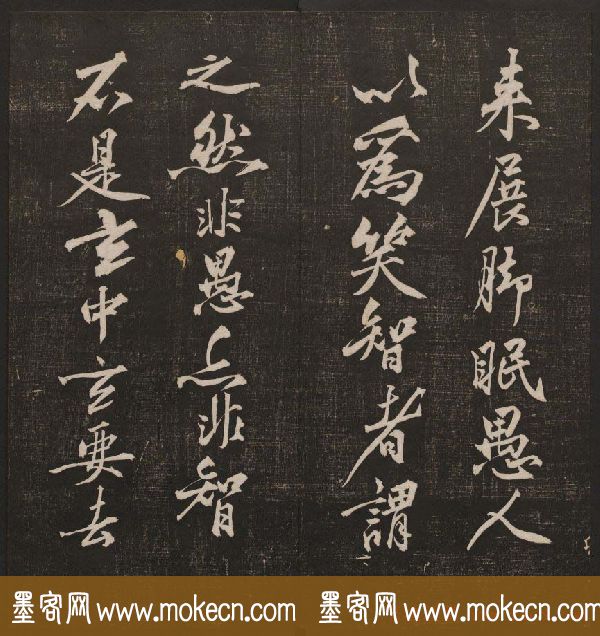 来展脚眠愚人
以为笑智者謂
之然非愚亦非智
不是玄中玄要去
墨客网 www.mokecn.com 墨客网 www.mokecn.com